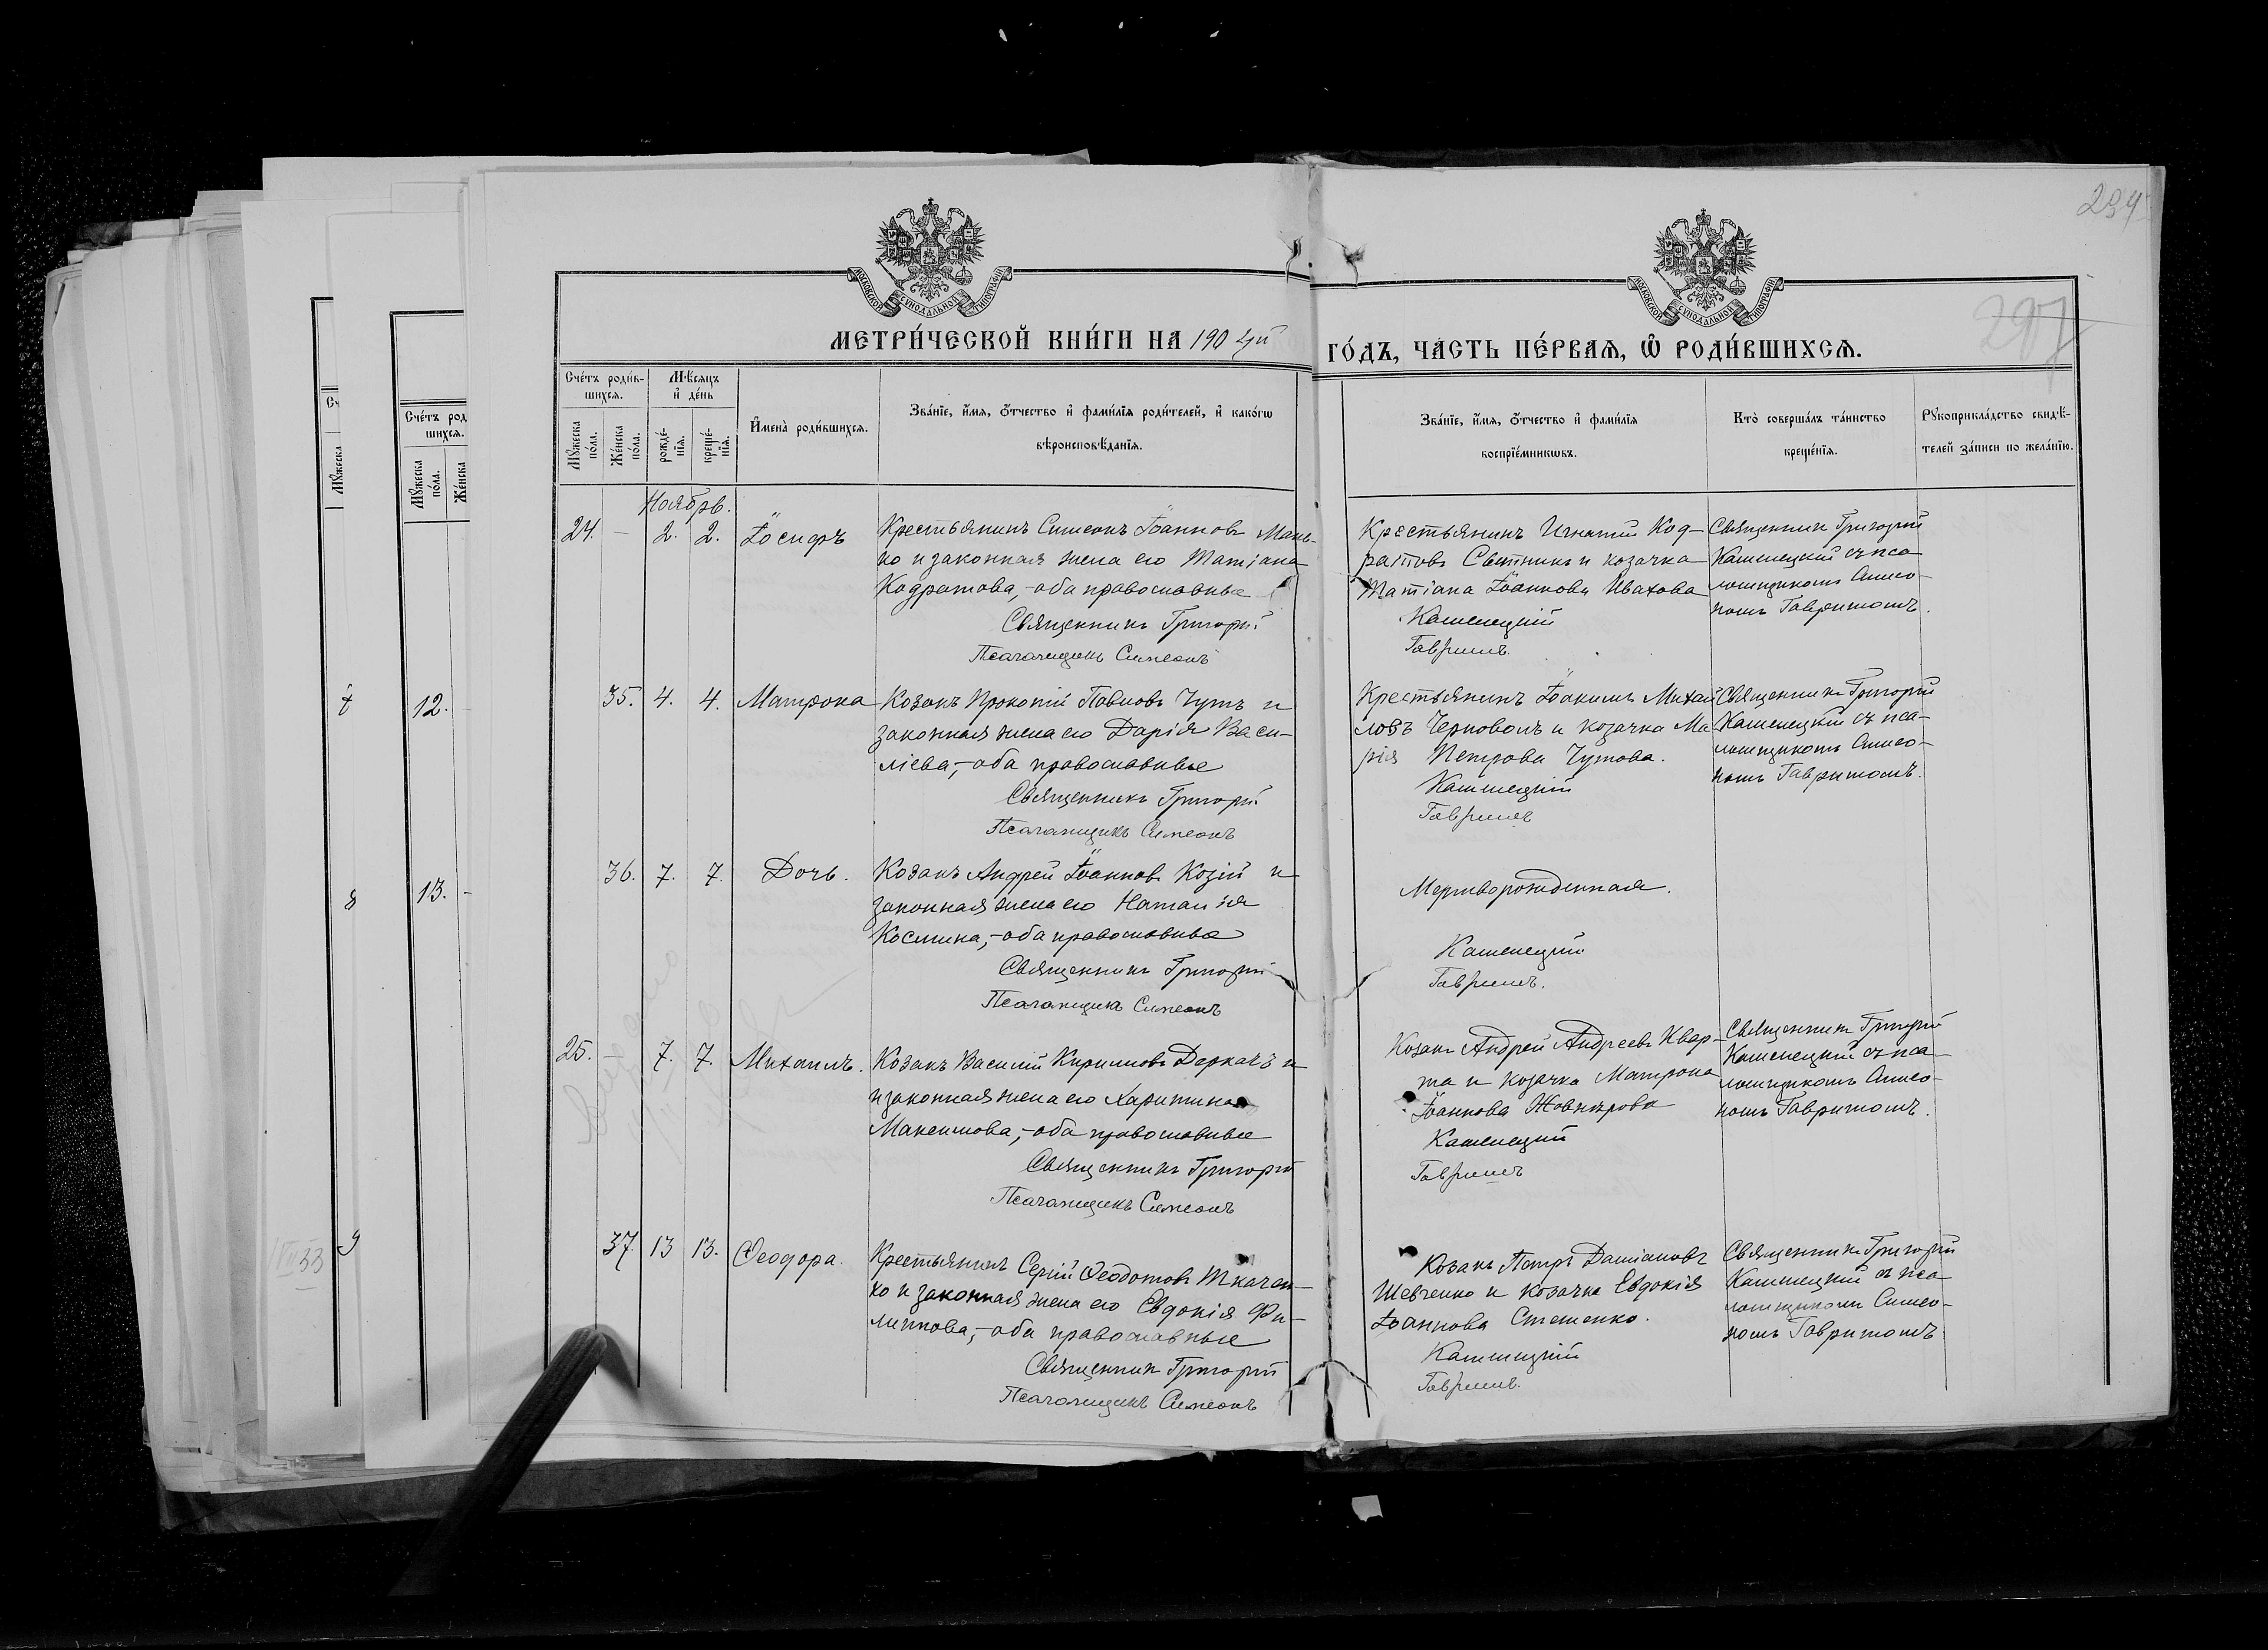 294
297
МОСКОВСКОЙ СѴНОДАЛЬНОЙ ТИПОГРАФІИ
МОСКОВСКОЙ СѴНОДАЛЬНОЙ ТИПОГРАФІИ
МЕТРИ́ЧЕСКОЙ КНИ́ГИ НА 190 4ый
ГО́ДЪ, ЧА́СТЬ ПЕ́РВАѦ, Ѽ РОДИ́ВШИХСѦ.
Сче́тъ роди́в-
шихсѧ.
Мѣ́сѧцъ
и҆ де́нь
Мꙋ́жеска
по́ла.
Же́нска
по́ла.
рожде́-
нїѧ.
креще́-
нїѧ.
И҆мена̀ роди́вшихсѧ.
Зва́нїе, и҆́мѧ, ѻ҆́тчество и҆ фамі́лїѧ роди́телей, и҆ како́гѡ
вѣроисповѣ́данїѧ.
Зва́нїе, и҆́мѧ, ѻ҆́тчество и҆ фамі́лїѧ
воспрїе́мникѡвъ.
Кто̀ соверша́лъ та́инство
креще́нїѧ.
Рꙋкоприкла́дство свидѣ́-
телей за́писи по жела́нїю.
Ноябрь.
24. – 2. 2. Іосифъ
Крестьянинъ Симеонъ Іоанновъ Мань-
ко и законная жена его Татіана
Кодратова,- оба православные
Священникъ Григорій
Псаломщикъ Симеонъ
Крестьянинъ Игнатій Код-
ратовъ Свитликъ и козачка
Татіана Іоаннова Ивахова
Каменецкій
Гавришъ.
Священникъ Григорій
Каменецкій съ пса-
ломщикомъ Симео-
номъ Гавришомъ.
35. 4. 4. Матрона
Козакъ Прокопій Павловъ Чутъ и
законная жена его Дарія Васи-
ліева,- оба православные
Священникъ Григорій
Псаломщикъ Симеонъ
Крестьянинъ Іоакимъ Михай-
ловъ Черноволъ и козачка Ма-
рія Петрова Чутова.
Каменецкій
Гавришъ
Священникъ Григорій
Каменецкій съ пса-
ломщикомъ Симео-
номъ Гавришомъ.
36. 7. 7. Дочь.
Козакъ Андрей Іоанновъ Козій и
законная жена его Наталія
Космина,- оба православные
Священникъ Григорій
Псаломщикъ Симеонъ
Мертворожденная.
Каменецкій
Гавришъ.
25. – 7. 7. Михаилъ.
Козакъ Василій Кирилловъ Деркачъ и
и законная жена его Харитина
Максимова,- оба православные
Священникъ Григорій
Псаломщикъ Симеонъ
Козакъ Андрей Андреевъ Квар-
та и козачка Матрона
Іоаннова Жовнѣрова
Каменецкій
Гавришъ
Священникъ Григорій
Каменецкій съ пса-
ломщикомъ Симео-
номъ Гавришомъ.
37. 13 13. Ѳеодора.
Крестьянинъ Сергій Ѳеодотовъ Ткачен-
ко и законная жена его Евдокія Фи-
липпова,- оба православные
Священникъ Григорій
Псаломщикъ Симеонъ
Козакъ Петръ Даміановъ
Шевченко и козачка Евдокія
Іоаннова Стешенко.
Каменецкій
Гавришъ.
Священникъ Григорій
Каменецкій съ пса-
ломщикомъ Симео-
номъ Гавришомъ
Сче́тъ род
шихсѧ.
Мꙋ́жеска
по́ла.
Же́нска
12.
13. -
Мꙋ́жеска